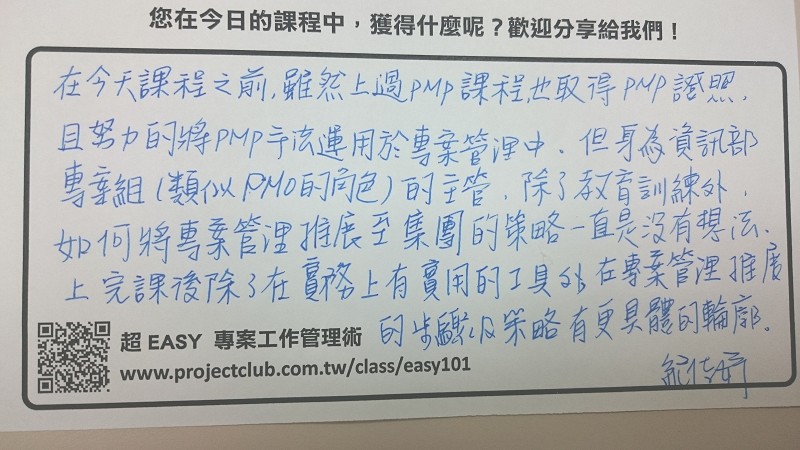 您在今日的課程中，獲得什麼呢？歡迎分享給我們！
在今天課程之前，雖然上過PMP課程，也取得PMP證照，
且努力的將PMP手法運用於專案管理中。但身為資訊部
專案組（類似PMO的角色）的主管，除了教育訓練外，
如何將專案管理推展至集團的策略一直是沒有想法。
上完課後除了在實務上有實用的工具外，在專案管理推展
的步驟以及策略有更具體的輪廓。
超EASY 專案工作管理術
www.projectclub.com.tw/class/easy101